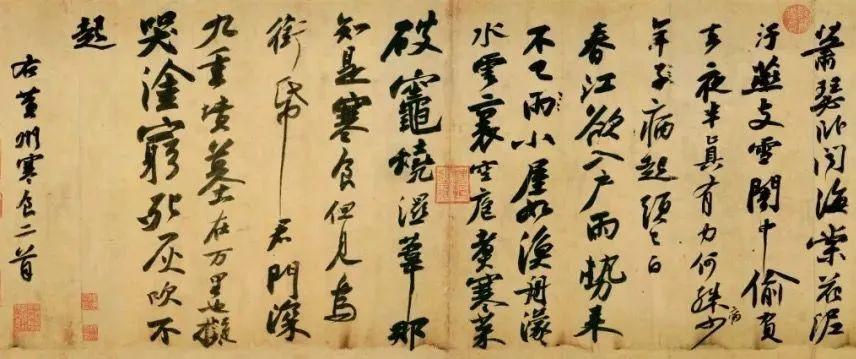 蕭瑟臥聞海棠花泥
汙燕支雪闇中偷負
去夜半真有力何殊少病
年子病起須已白
春江欲入戶雨勢來
不已雨小屋如漁舟濛
水雲裏空庖煮寒菜
破竈燒濕葦那
知是寒食但見烏
銜帋君門深
九重墳墓在万里也擬
哭塗窮死灰吹不
起
右黃州寒食二首